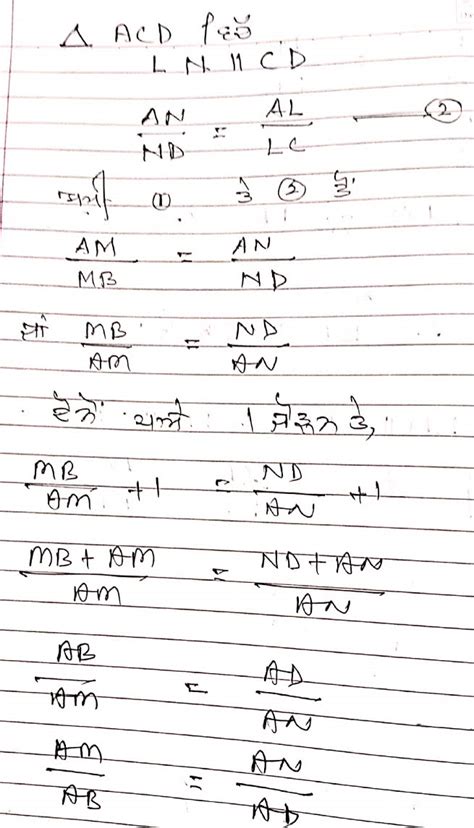 △ ACD ਵਿੱਚ
LN || CD
AN/ND = AL/LC —— ②
① ਤੇ ② ਤੋਂ
AM/MB = AN/ND
ਜਾਂ MB/AM = ND/AN
ਦੋਨੋਂ ਪਾਸੇ 1 ਜੋੜਨ ਤੇ,
MB/AM +1 = ND/AN +1
MB + AM/AM = ND + AN/AN
AB/AM = AD/AN
AM/AB = AN/AD